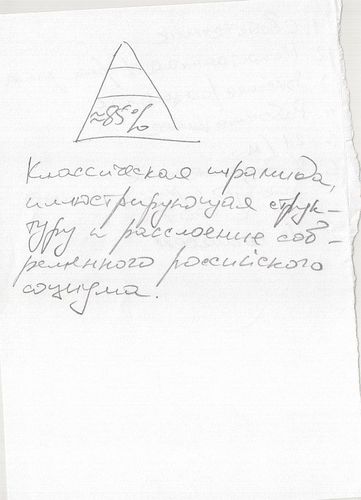 ≈85%
Классическая пирамида,
иллюстрирующая струк-
туру и расслоение сов-
ременного российского
социума.